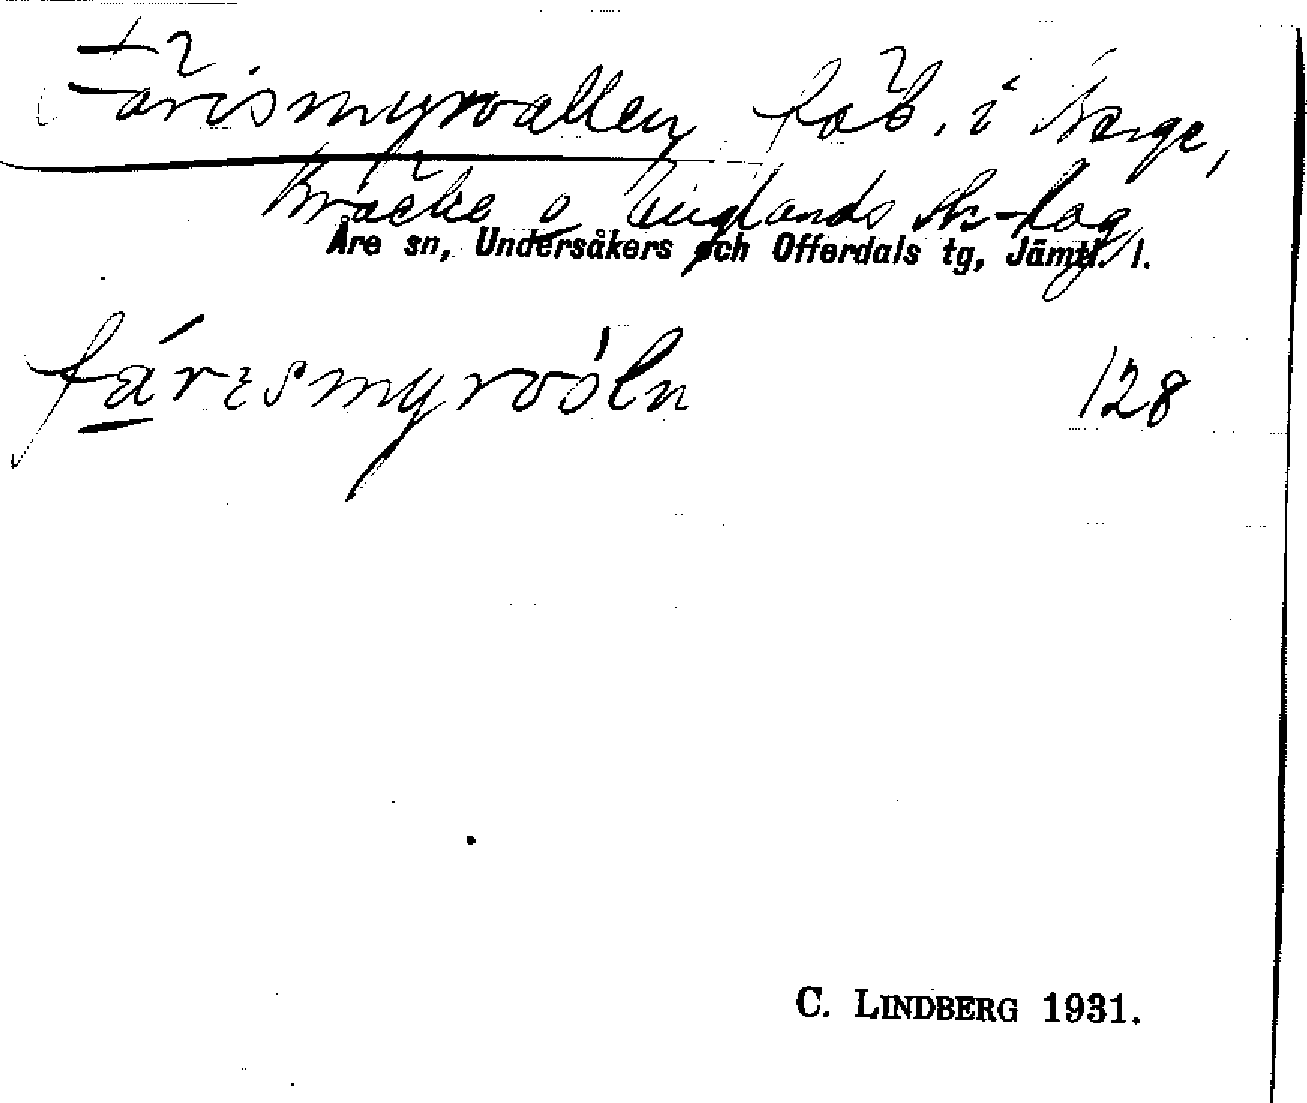 Färismyrvallen fäb. i Berge,
Bräcke o Englands sk-lag
Åre sn, Undersåkers och Offerdals tg, Jämtl. l.
fárɩsmyrvóln 128
C. LINDBERG 1931.